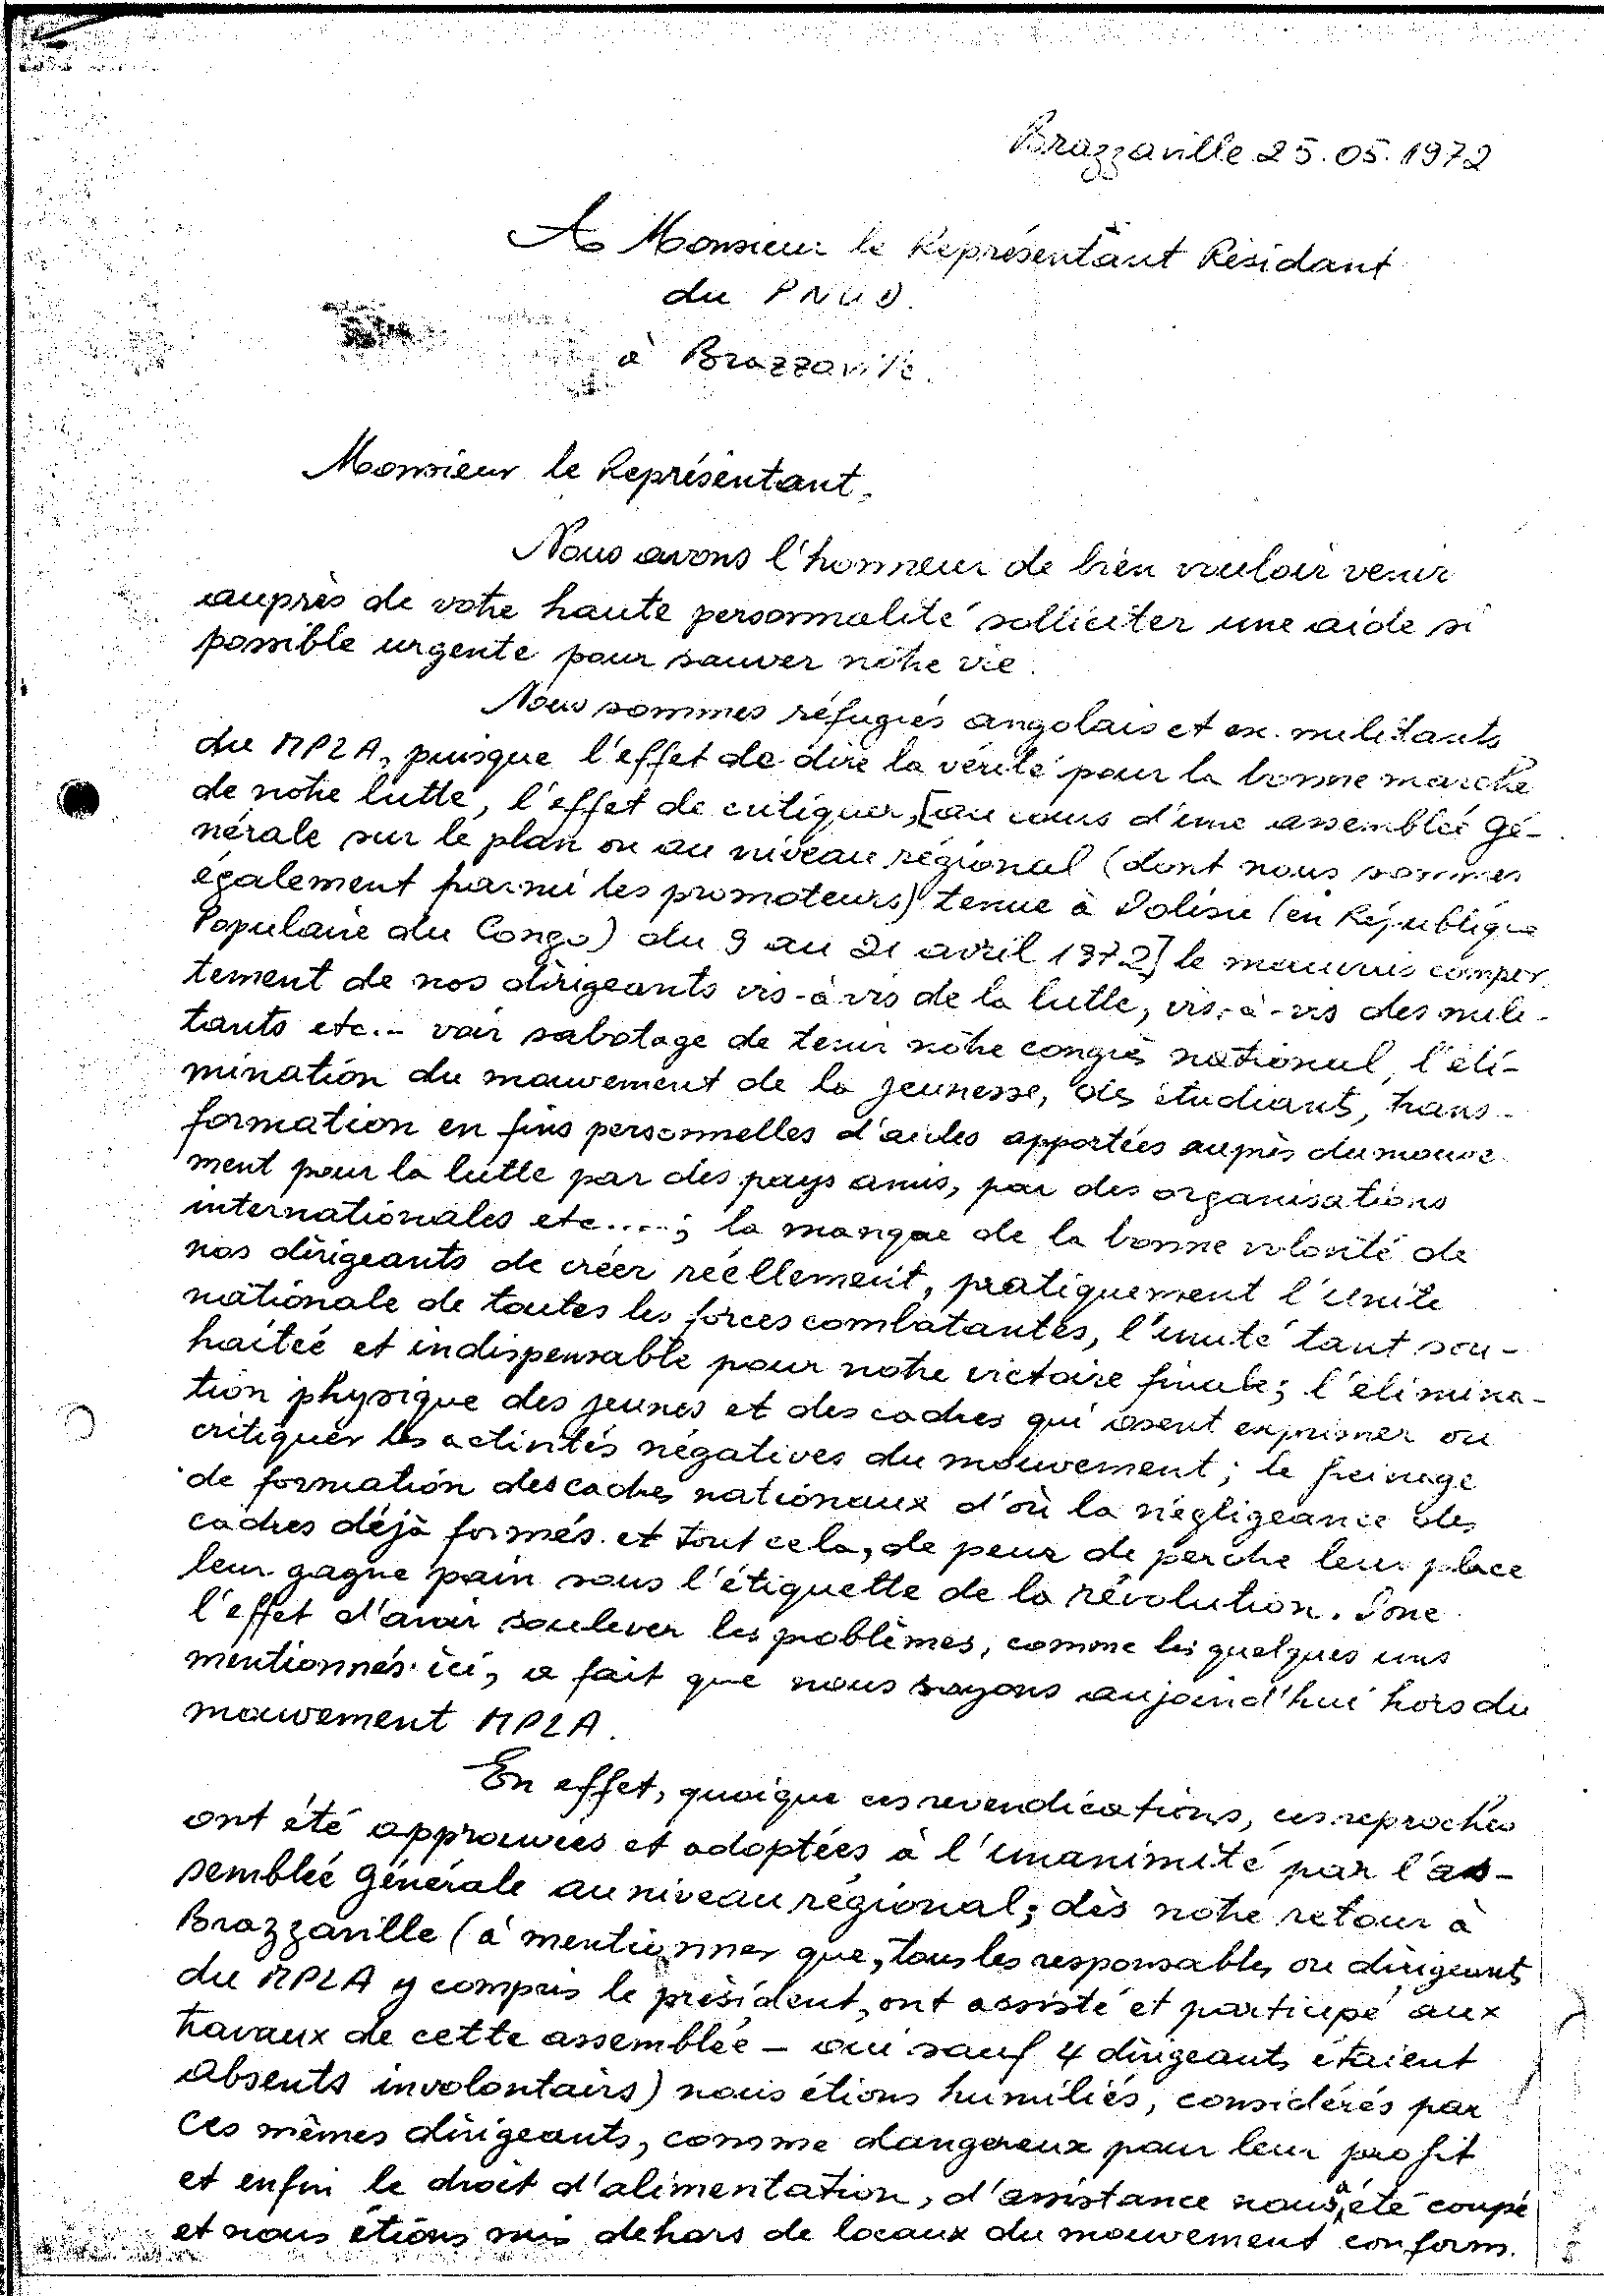 Brazzaville 25.05.1972
A Monsieur le Représentant Résidant
du PNUD.
à Brazzaville.
Monsieur le Représentant,
Nous avons l'honneur de bien vouloir venir
auprès de votre haute personnalité solliciter une aide si
possible urgente pour sauver notre vie.
Nous sommes réfugiés angolais et ex. militants
du MPLA, puisque l'effet de dire la vérité pour la bonne marche
de notre lutte, l'effet de critiquer, [au cours d'une assemblée gé-
nérale sur le plan ou au niveau régional (dont nous sommes
également parmi les promoteurs) tenue à Dolisie (en République
Populaire du Congo) du 9 au 21 avril 1972] le mauvais compor
tement de nos dirigeants vis-à-vis de la lutte, vis-à-vis des mili-
tants etc... voir sabotage de tenir notre congrès national, l'éli-
mination du mouvement de la jeunesse, des étudiants, trans-
formation en fins personnelles d'aides apportées auprès du mouve
ment pour la lutte par des pays amis, par des organisations
internationales etc....; la manque de la bonne volonté de
nos dirigeants de créer réellement, pratiquement l'unité
nationale de toutes les forces combatantes, l'unité tant sou-
haitée et indispensable pour notre victoire finale; l'élimina-
tion physique des jeunes et des cadres qui osent exprimer ou
critiquer les activités négatives du mouvement; le freinage
de formation des cadres nationaux d'où la négligeance des
cadres déjà formés. et tout cela, de peur de perdre leur place
leur gagne pain sous l'étiquette de la révolution. Donc
l'effet d'avoir soulever les problèmes, comme les quelques uns
mentionnés ici, a fait que nous soyons aujourd'hui hors du
mouvement MPLA.
En effet, quoique ces revendications, ces reproches
ont été approuvées et adoptées à l'unanimité par l'as-
semblée générale au niveau régional; dès notre retour à
Brazzaville (à mentionner que, tous les responsables ou dirigeants
du MPLA y compris le président, ont assisté et participé aux
travaux de cette assemblée - oui sauf 4 dirigeants étaient
absents involontairs) nous étions humiliés, considérés par
ces mêmes dirigeants, comme dangereux pour leur profit
et enfin le droit d'alimentation, d'assistance nous a été coupé
et nous étions mis dehors de locaux du mouvement conform.